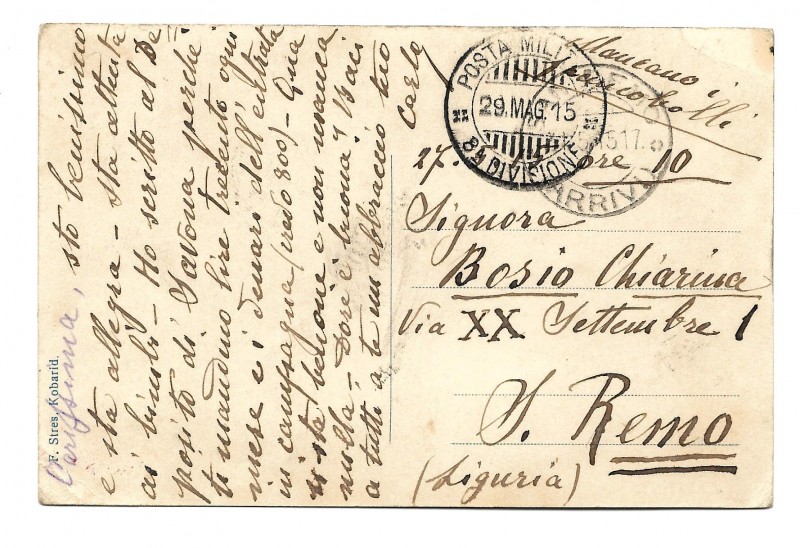 Carissima, sto benissimo
e sta allegra - sta attenta
ai bimbi - Ho scritto al De
posito di Savona perché
ti mandino lire trecento ogni
mese e i denari dell'entrata
in campagna (credo 800) - Qua
si sta benone e non manca
nulla. Doré è buona? Baci
a tutti a te un abbraccio tuo
Carlo
F. Stres, Kobarid.
POSTA MILIT
29.MAG.15
8ª DIVISIONE
ARRIVI
Mancano i
francobolli
27. ore 10
Signora
Bosio Chiarina
Via XX Settembre 1
S. Remo
(Liguria)